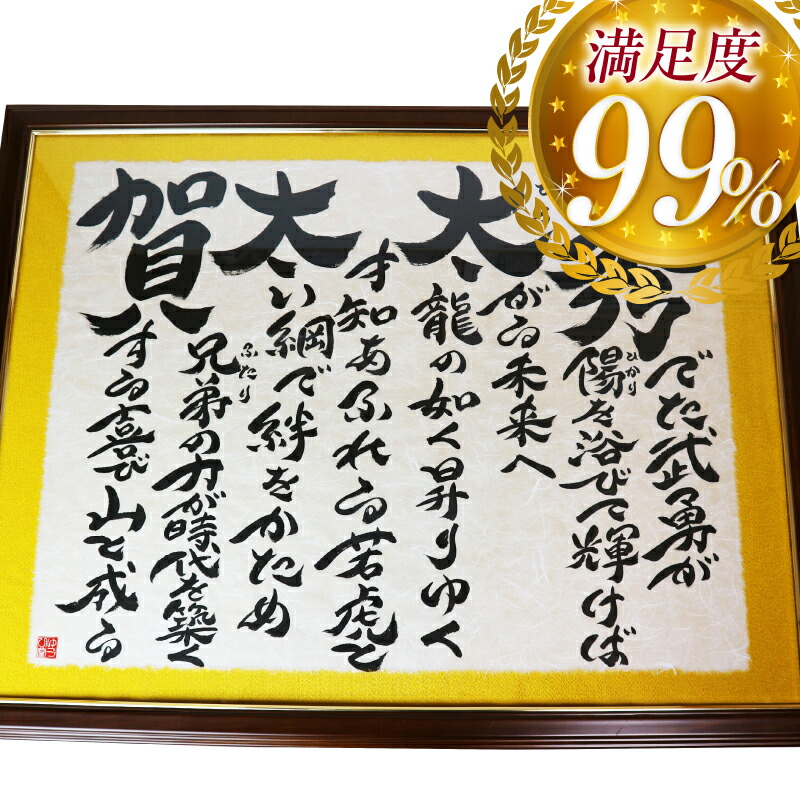 満足度
99%
でた武勇が
陽を浴びて輝けば
ひかり
がる未来へ
太
龍の如く昇りゆく
才知あふれる若虎と
太い綱で絆をかため
兄弟の力が時代を築く
ふたり
賀する喜び山と成る